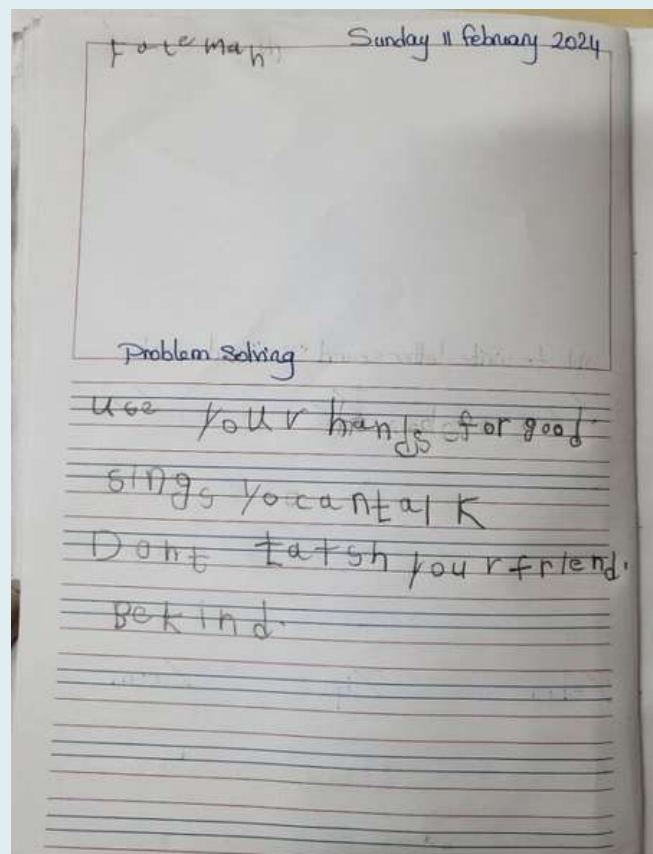 Fatemah Sunday 11 February 2024
Problem Solving
Use your hands for good
sings yo cantalk
Dont tatsh your friend.
Be kind.